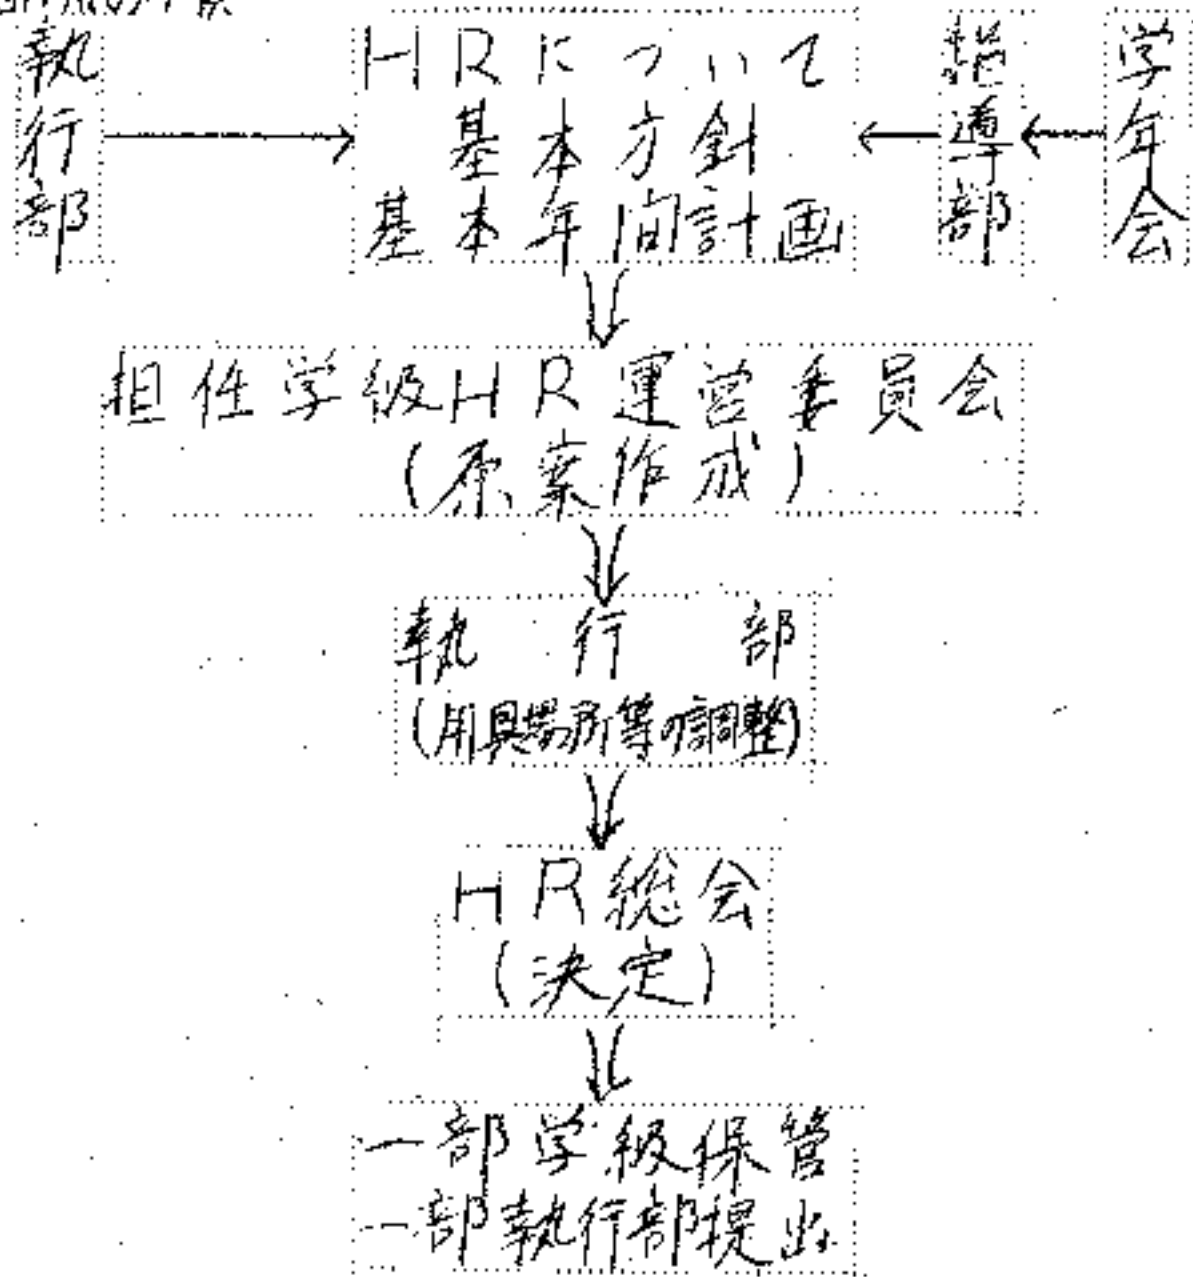 執行部
HRについて
基本方針
基本年間計画
指導部
学年会
担任学級HR運営委員会
(原案作成)
執行部
(用具場所等の調整)
HR総会
(決定)
一部学級保管
一部執行部提出